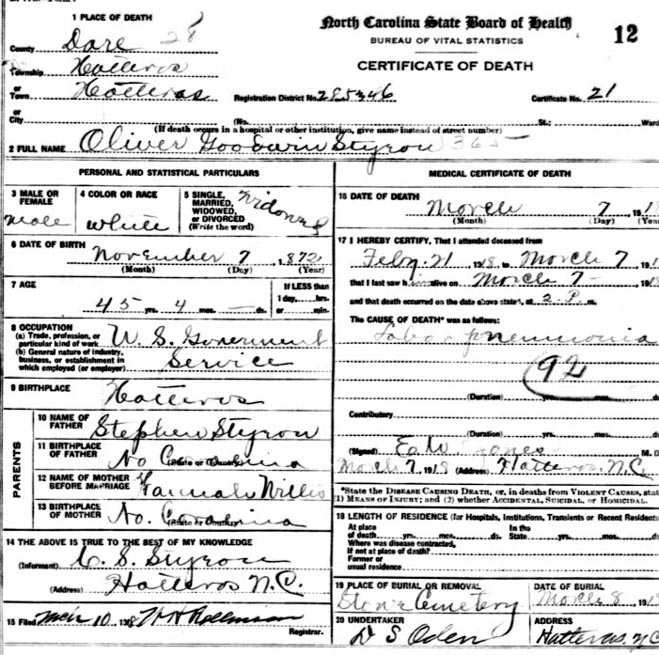 1 PLACE OF DEATH
North Carolina State Board of Health
12
BUREAU OF VITAL STATISTICS
CERTIFICATE OF DEATH
County Dare 28
Township Hatteras
or
Town Hatteras
Registration District No. 285346
Certificate No. 21
or
City
(No. St.; Ward
(If death occurs in a hospital or other institution, give name instead of street number)
2 FULL NAME Oliver Goodwin Styron 365
PERSONAL AND STATISTICAL PARTICULARS
3 MALE OR FEMALE male
4 COLOR OR RACE white
5 SINGLE, MARRIED, WIDOWED, or DIVORCED (Write the word) Widowed
6 DATE OF BIRTH November 7 1872
(Month) (Day) (Year)
7 AGE
45 yrs. 4 mos. — ds.
If LESS than 1 day, hrs. or min.
8 OCCUPATION
(a) Trade, profession, or particular kind of work U. S. Goverment
(b) General nature of industry, business, or establishment in which employed (or employer) Service
9 BIRTHPLACE Hatteras
PARENTS
10 NAME OF FATHER Stephen Styron
11 BIRTHPLACE OF FATHER No Carolina
(State or Country)
12 NAME OF MOTHER BEFORE MARRIAGE Willis
13 BIRTHPLACE OF MOTHER No. Carolina
(State or Country)
14 THE ABOVE IS TRUE TO THE BEST OF MY KNOWLEDGE
(Informant) S. Styron
(Address) Hatteras N.C.
15 Filed Mch 10, 1918
Registrar.
MEDICAL CERTIFICATE OF DEATH
16 DATE OF DEATH March 7 191
(Month) (Day) (Year)
17 I HEREBY CERTIFY, That I attended deceased from
Feby. 21 1918 to March 7 191
that I last saw him alive on March 7 191
and that death occurred on the date above stated, at 2 P. m.
The CAUSE OF DEATH* was as follows:
Lobar pneumonia
92
(Duration) yrs. mos. ds.
Contributory
(Duration) yrs. mos. ds.
(Signed) Jones M. D.
March 7, 1918 (Address) Hatteras, N.C.
*State the DISEASE CAUSING DEATH, or, in deaths from VIOLENT CAUSES, stat
1) MEANS OF INJURY; and (2) whether ACCIDENTAL, SUICIDAL, or HOMICIDAL.
18 LENGTH OF RESIDENCE (for Hospitals, Institutions, Transients or Recent Residents
At place of death yrs. mos. ds. In the State yrs. mos. ds.
Where was disease contracted,
if not at place of death?
Former or
usual residence
19 PLACE OF BURIAL OR REMOVAL
Cemetery
DATE OF BURIAL
March 8 191
20 UNDERTAKER
D S Oden
ADDRESS
Hatteras, N C